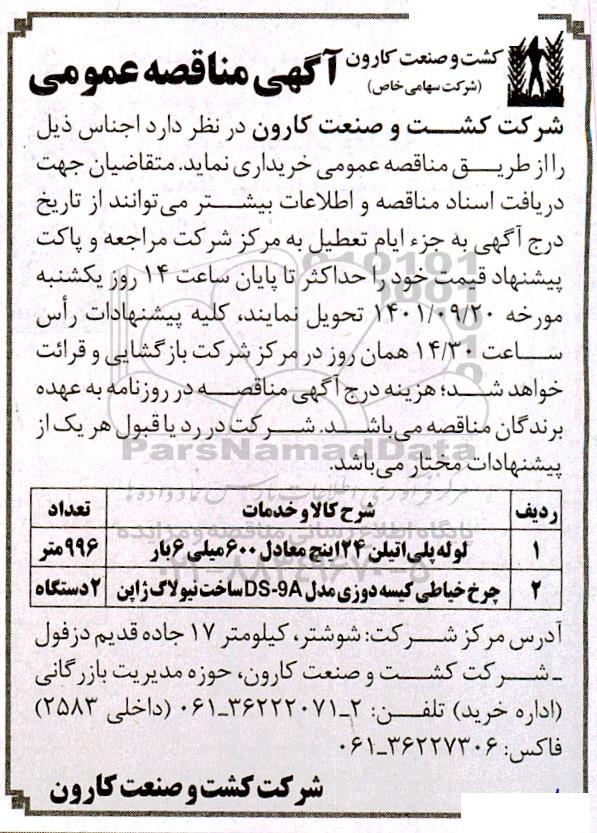 کشت و صنعت کارون
(شرکت سهامی خاص)
آگهی مناقصه عمومی
شرکت کشت و صنعت کارون در نظر دارد اجناس ذیل
را از طریق مناقصه عمومی خریداری نماید. متقاضیان جهت
دریافت اسناد مناقصه و اطلاعات بیشتر می‌توانند از تاریخ
درج آگهی به جزء ایام تعطیل به مرکز شرکت مراجعه و پاکت
پیشنهاد قیمت خود را حداکثر تا پایان ساعت ۱۴ روز یکشنبه
مورخه ۱۴۰۱/۰۹/۲۰ تحویل نمایند، کلیه پیشنهادات رأس
ساعت ۱۴/۳۰ همان روز در مرکز شرکت بازگشایی و قرائت
خواهد شد؛ هزینه درج آگهی مناقصه در روزنامه به عهده
برندگان مناقصه می‌باشد. شرکت در رد یا قبول هر یک از
پیشنهادات مختار می‌باشد.
ParsNamadData
ردیف شرح کالا و خدمات تعداد
۱ لوله پلی اتیلن ۲۴ اینچ معادل ۶۰۰ میلی ۶ بار ۹۹۶ متر
۲ چرخ خیاطی کیسه دوزی مدل DS-9A ساخت نیولاگ ژاپن ۲ دستگاه
آدرس مرکز شرکت: شوشتر، کیلومتر ۱۷ جاده قدیم دزفول
ـ شرکت کشت و صنعت کارون، حوزه مدیریت بازرگانی
(اداره خرید) تلفن: ۲ـ۳۶۲۲۲۰۷۱ـ۰۶۱ (داخلی ۲۵۸۳)
فاکس: ۳۶۲۲۷۳۰۶ـ۰۶۱
شرکت کشت و صنعت کارون